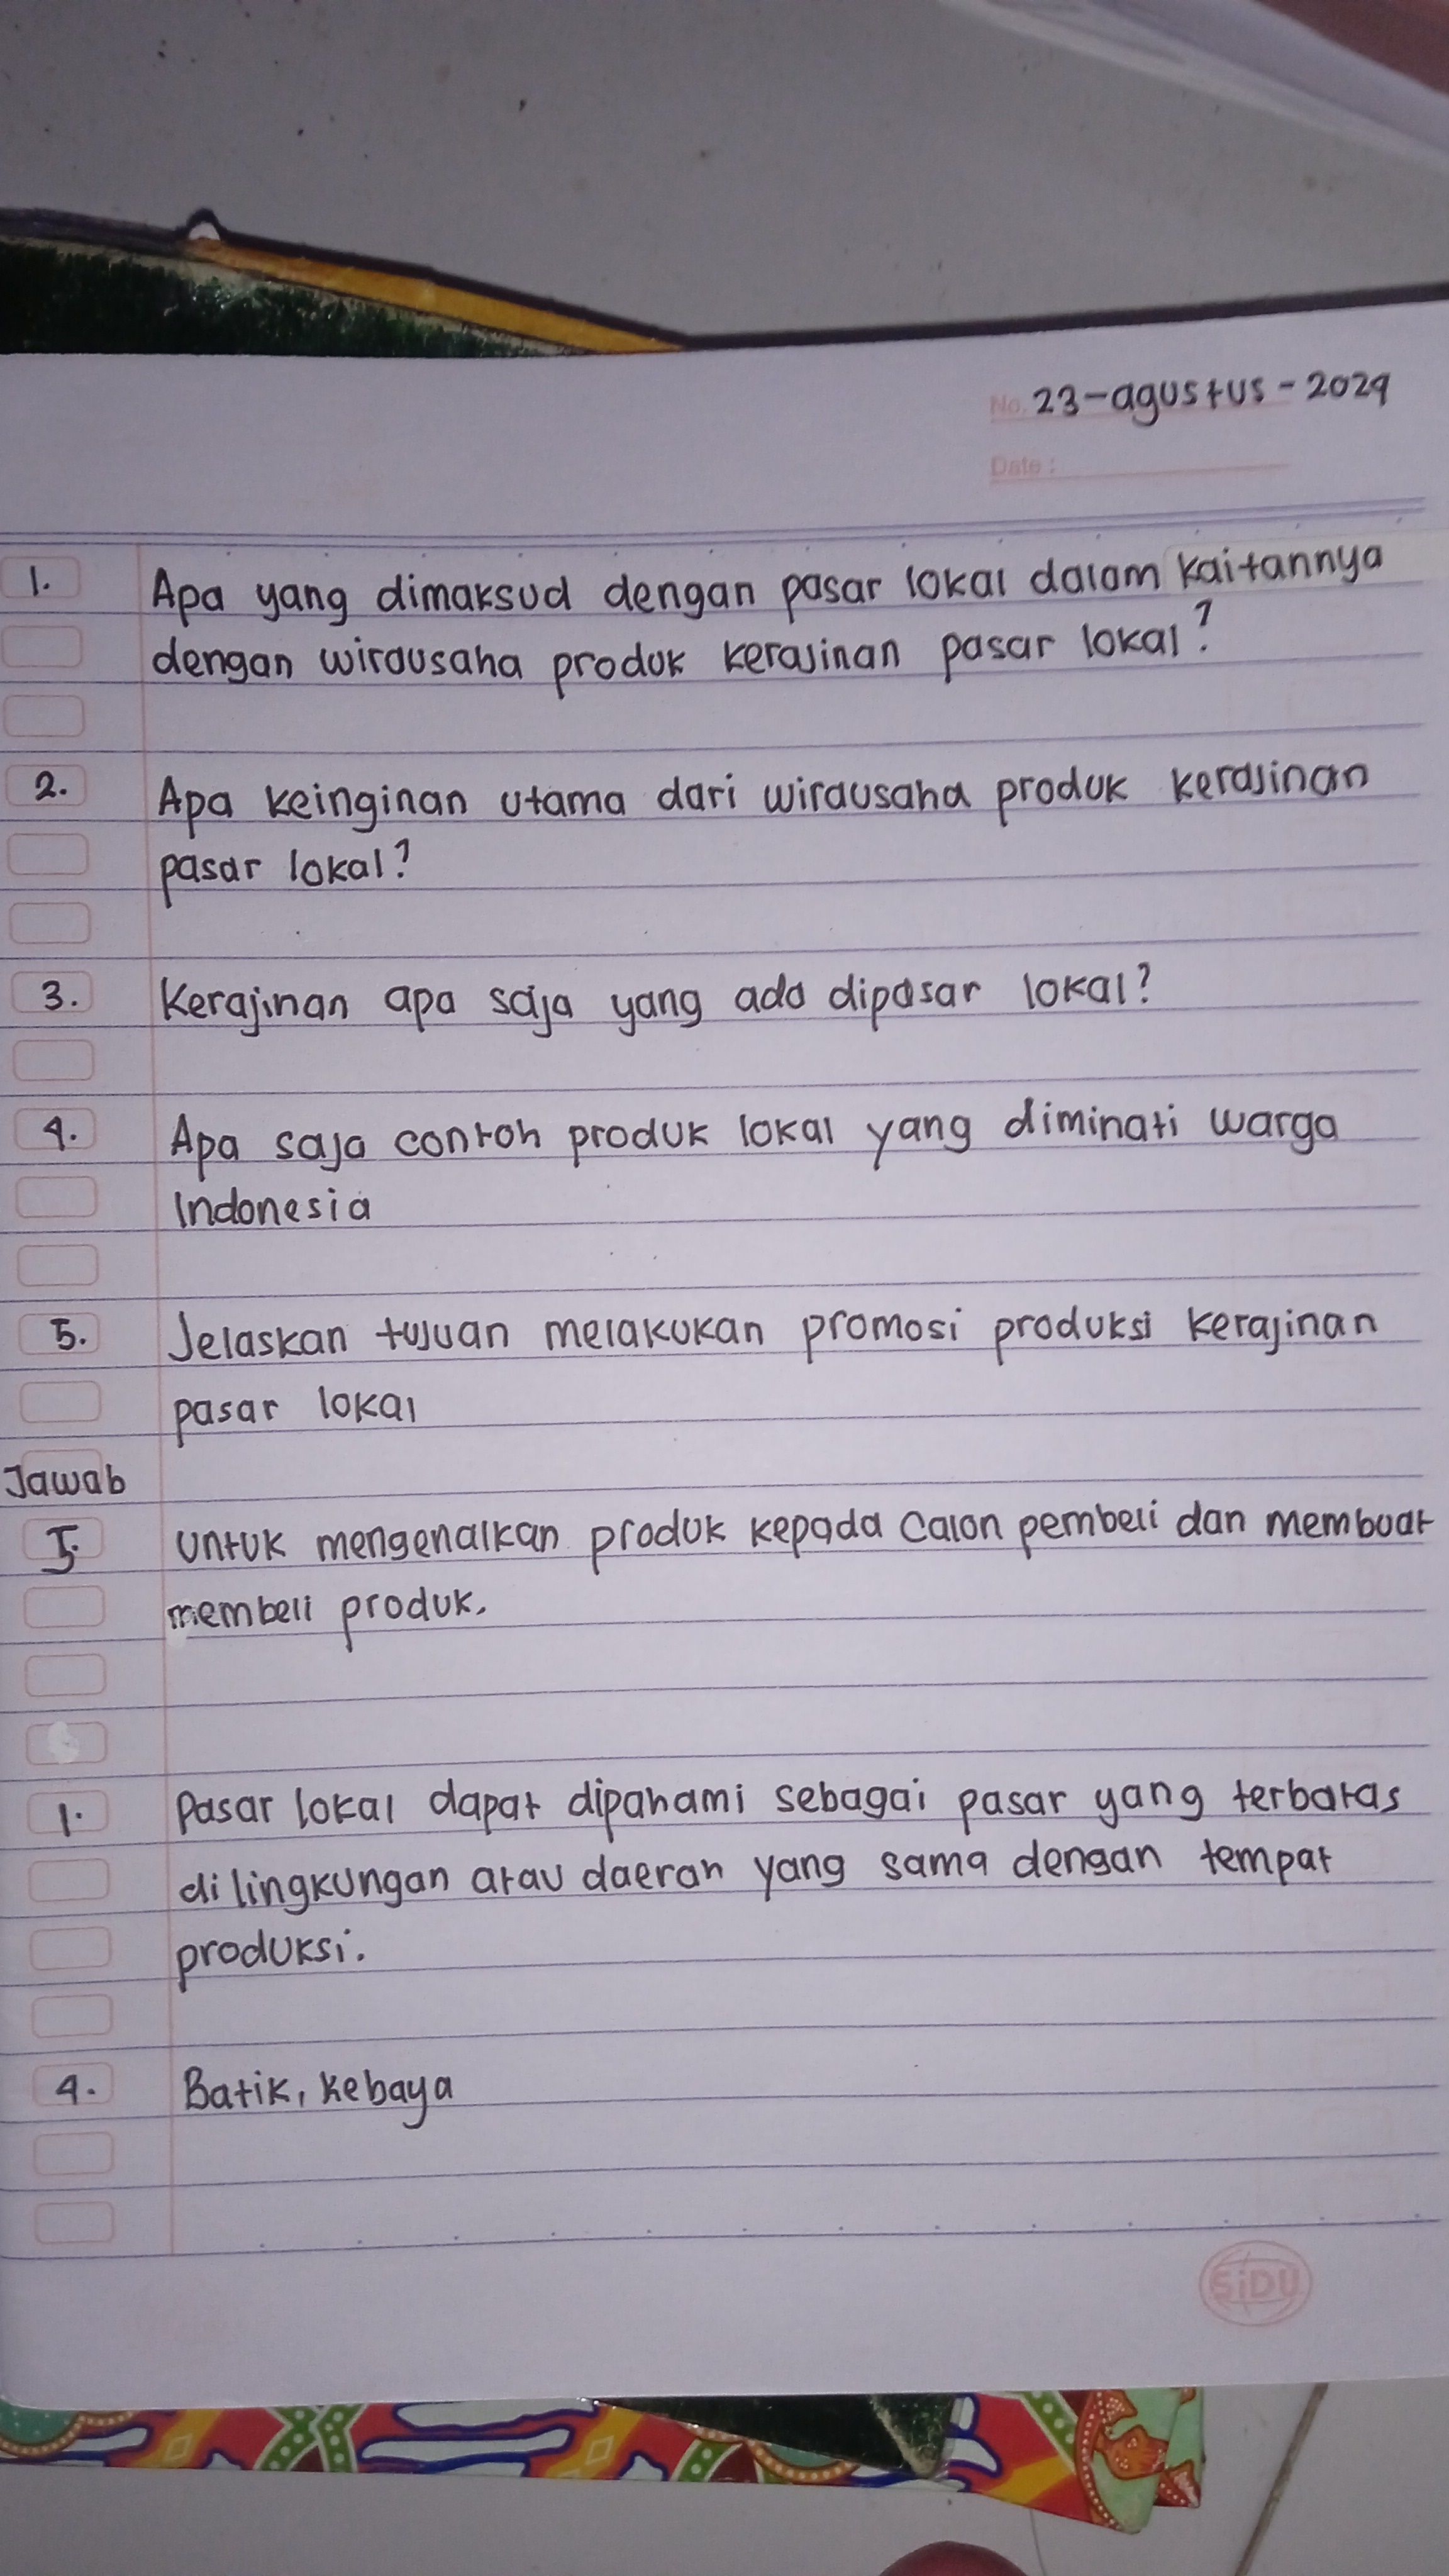 No. 23-agustus-2024
Date :
1. Apa yang dimaksud dengan pasar lokal dalam kaitannya
dengan wirausaha produk kerajinan pasar lokal?
2. Apa keinginan utama dari wirausaha produk kerajinan
pasar lokal?
3. Kerajinan apa saja yang ada dipasar lokal?
4. Apa saja contoh produk lokal yang diminati warga
Indonesia
5. Jelaskan tujuan melakukan promosi produksi kerajinan
pasar lokal
Jawab
5. untuk mengenalkan produk kepada calon pembeli dan membuat
membeli produk.
1. Pasar lokal dapat dipahami sebagai pasar yang terbatas
di lingkungan atau daerah yang sama dengan tempat
produksi.
4. Batik, kebaya
SiDU